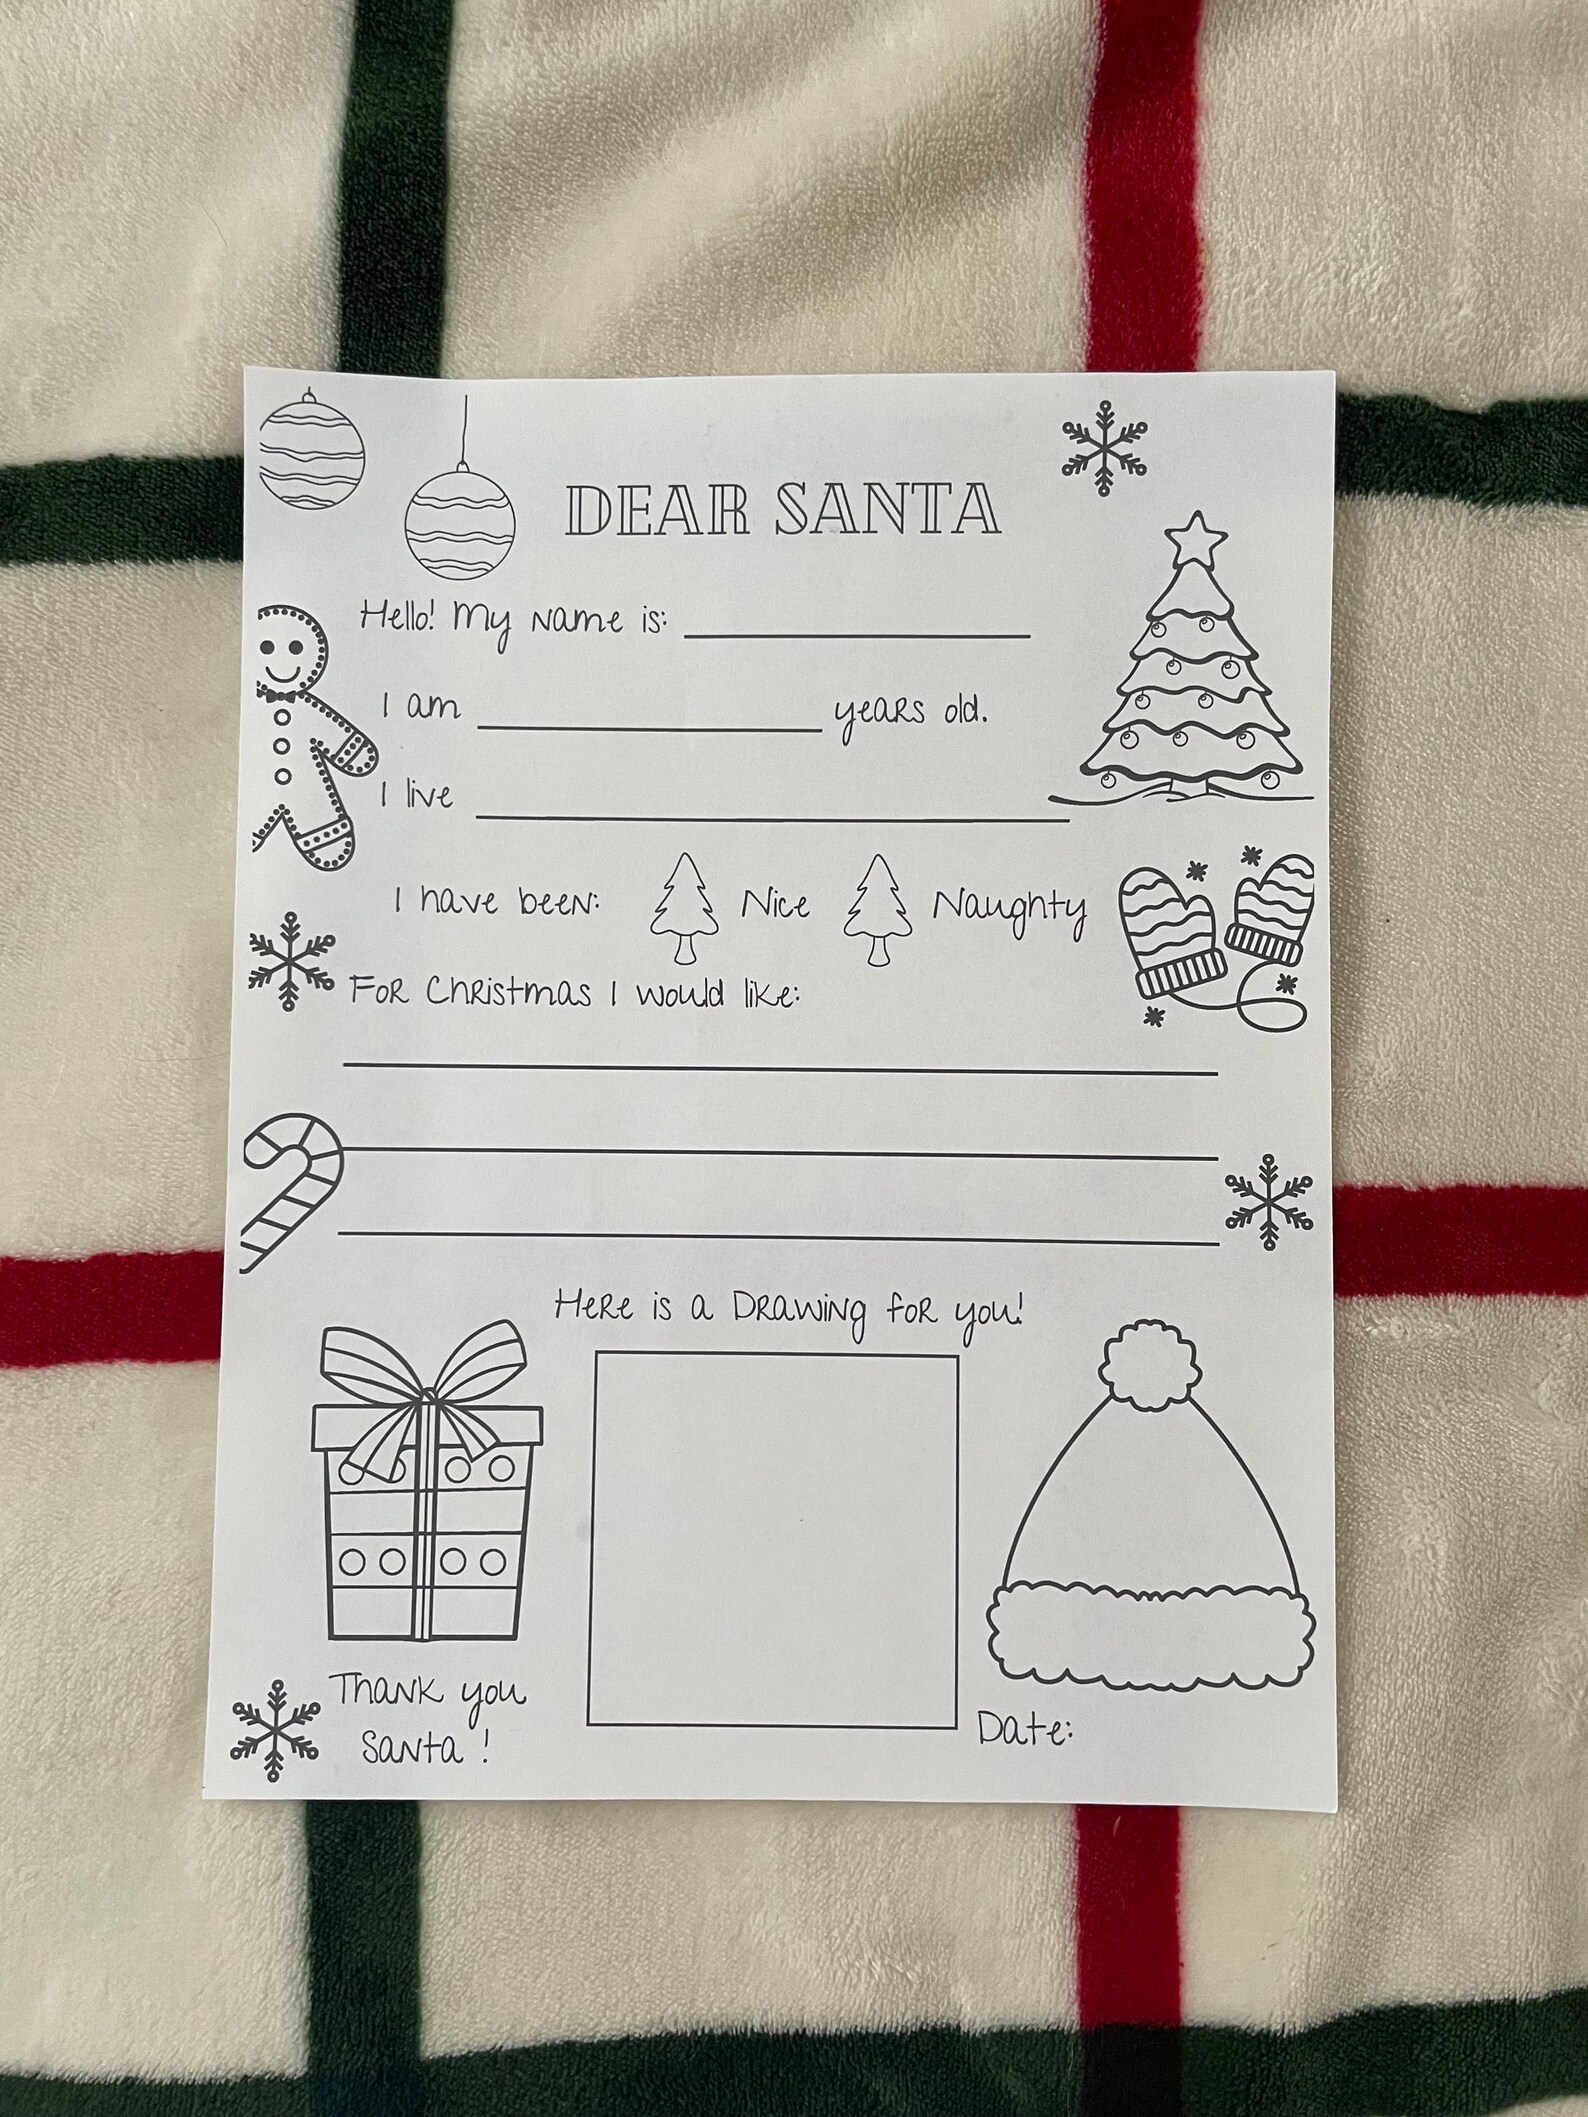 DEAR SANTA
Hello! My name is:
I am years old.
I live
I have been: Nice Naughty
For Christmas I would like:
Here is a Drawing for you!
Thank you
Santa!
Date: